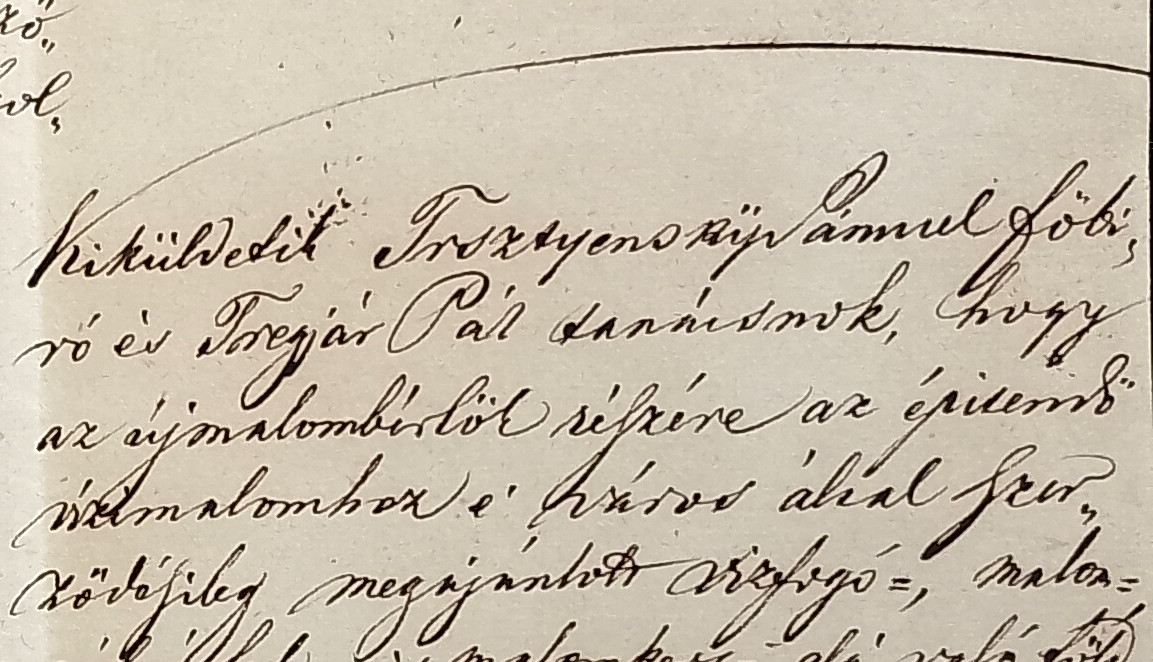 kö„
ol„
Kiküldetik Trsztyenszky Sámuel főbi„
ró és Tregjár Pál tanácsnok, hogy
az újmalombérlők részére az épitendő
vizimalomhoz e' város által szer„
ződésileg megajánlott vizfogó=, malom=